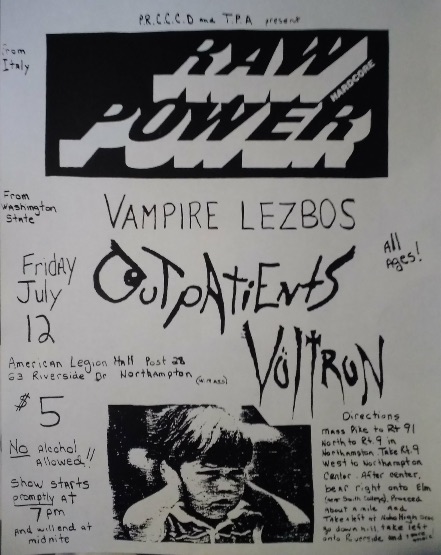 P.R.C.C.C.D and T.P.A present
From
Italy
RAW
POWER
HARDCORE
From
Washington
State
VAMPIRE LEZBOS
All
Ages!
OUTPATIENTS
Friday
July
12
VOLTRON
American Legion Hall Post 28
63 Riverside Dr Northampton
$5
No alcohol
allowed!!
Show starts
promptly at
7 pm
and will end at
midnite
Directions
Mass Pike to Rt 91
North to Rt. 9 in
Northampton Take Rt. 9
West to Northampton
Center. After center,
bear right onto Elm
(near Smith College). Proceed
about a mile And
Take left at
go down hill take left
onto Riverside and